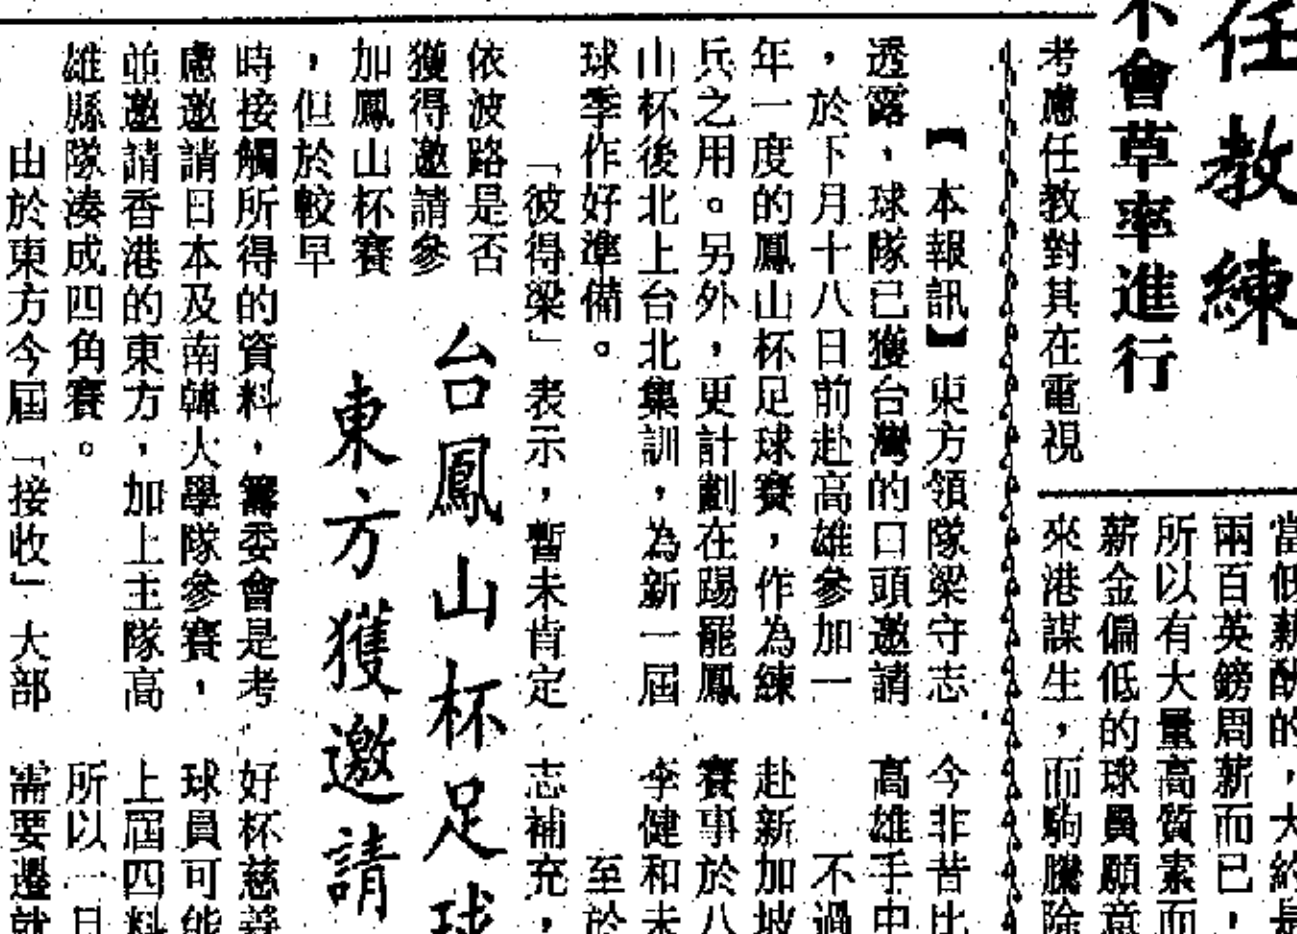 任教練
不會草率進行
考慮任教對其在電視
當低薪酬的，大約是
兩百英鎊周薪而已，
所以有大量高質素而
薪金偏低的球員願意
來港謀生，而駒騰除
台鳳山杯足球
東方獲邀請
【本報訊】東方領隊梁守志
透露，球隊已獲台灣的口頭邀請
，於下月十八日前赴高雄參加一
年一度的鳳山杯足球賽，作為練
兵之用。另外，更計劃在踢罷鳳
山杯後北上台北集訓，為新一屆
球季作好準備。
「彼得梁」表示，暫未肯定
依波路是否
獲得邀請參
加鳳山杯賽
，但於較早
時接觸所得的資料，籌委會是考
慮邀請日本及南韓大學隊參賽，
並邀請香港的東方，加上主隊高
雄縣隊湊成四角賽。
由於東方今屆「接收」大部
今非昔比
高雄手中
不過
赴新加坡
賽事於八
李健和未
至於
志補充，
好杯慈善
球員可能
上屆四料
所以一月
需要遷就